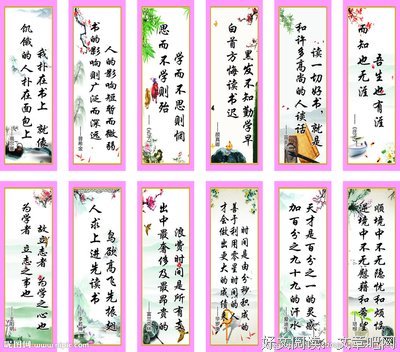 我扑在书上 就像
饥饿的人扑在面包上
人的影响短暂而微弱
书的影响则广泛而深远
——普希金
学而不思则惘
思而不学则殆
黑发不知勤学早
白首方悔读书迟
——颜真卿
读一切好书,就是
和许多高尚的人谈话
吾生也有涯
而知也无涯
故立志者 为学之心也
为学者 立志之事也
鸟欲高飞先振翅
人求上进先读书
浪费时间是所有支
出中最奢侈及最昂贵的
时间是由分秒积成的
善于利用零星时间的人
才会做出更大的成绩
天才是百分之一的灵感
加百分之九十九的汗水
顺境中不无隐忧和烦恼
逆境中不无慰藉和希望
昵图网 www.nipic.com